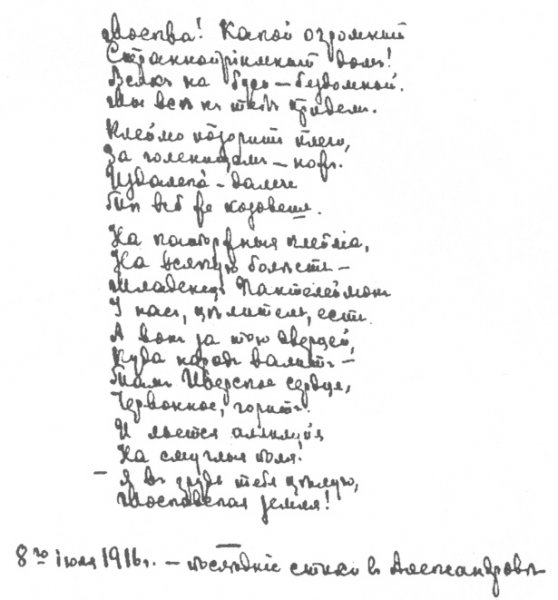 Москва! Какой огромный
Страннопріимный домъ!
Всякъ на Руси — бездомный.
Мы всѣ къ тебѣ придемъ.
Клеймо позоритъ плечи,
За голенищемъ — ножъ.
Издалека-далече
Ты всё же позовешь.
На каторжныя клейма,
На всякую болѣсть —
Младенецъ Пантелеймонъ
У насъ, цѣлитель, есть.
А вонъ за тою дверцей,
Куда народъ валитъ —
Тамъ Иверское сердце,
Червонное, горитъ.
И льется аллилуйя
На смуглыя поля.
— Я въ грудь тебя цѣлую,
Московская земля!
8го іюля 1916г. — послѣдніе стихи въ Александровѣ